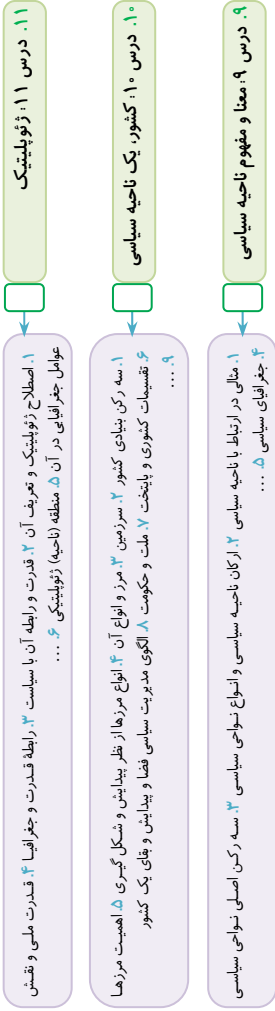 ۹. درس ۹: معنا و مفهوم ناحیه سیاسی
۱. مثالی در ارتباط با ناحیه سیاسی ۲. ارکان ناحیه سیاسی و انواع نواحی سیاسی ۳. سه رکن اصلی نواحی سیاسی
۴. جغرافیای سیاسی ۵. ...
۱۰. درس ۱۰: کشور، یک ناحیه سیاسی
۱. سه رکن بنیادی کشور ۲. سرزمین ۳. مرز و انواع آن ۴. انواع مرزها از نظر پیدایش و شکل گیری ۵. اهمیت مرزها
۶. تقسیمات کشوری و پایتخت ۷. ملت و حکومت ۸. الگوی مدیریت سیاسی فضا و پیدایش و بقای یک کشور
۹. ...
۱۱. درس ۱۱: ژئوپلیتیک
۱. اصطلاح ژئوپلیتیک و تعریف آن ۲. قدرت و رابطه آن با سیاست ۳. رابطهٔ قدرت و جغرافیا ۴. قدرت ملی و نقش
عوامل جغرافیایی در آن ۵. منطقه (ناحیه) ژئوپلیتیکی ۶. ...